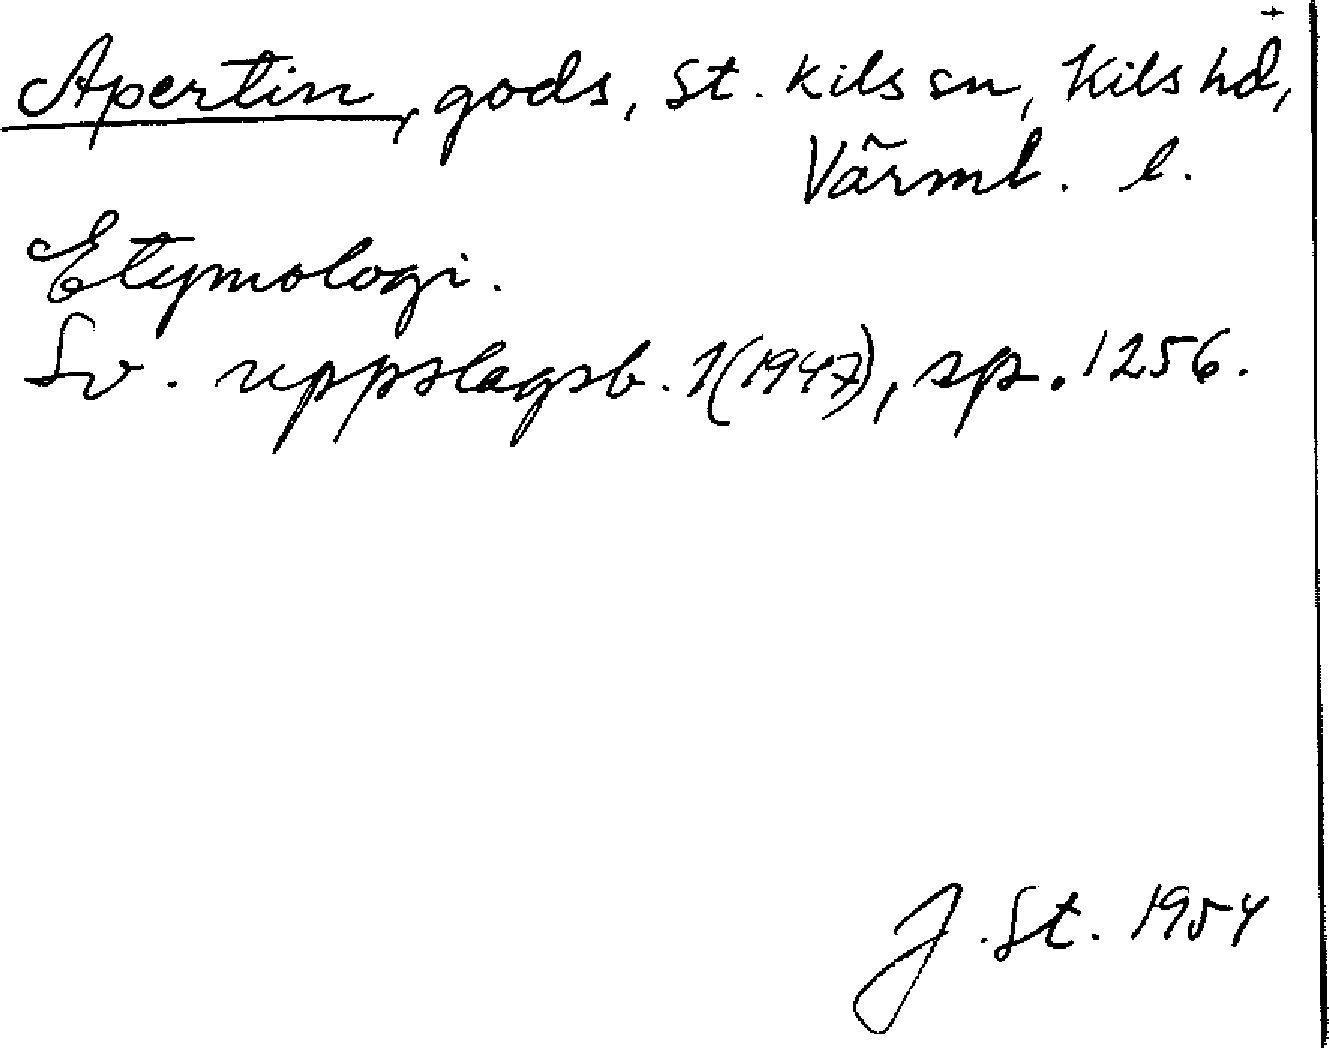 Apertin, gods, St. Kils sn, Kils hd,
Värml. l.
Etymologi.
Sv. uppslagsb. 1(1947), sp. 1256.
J. St. 1954